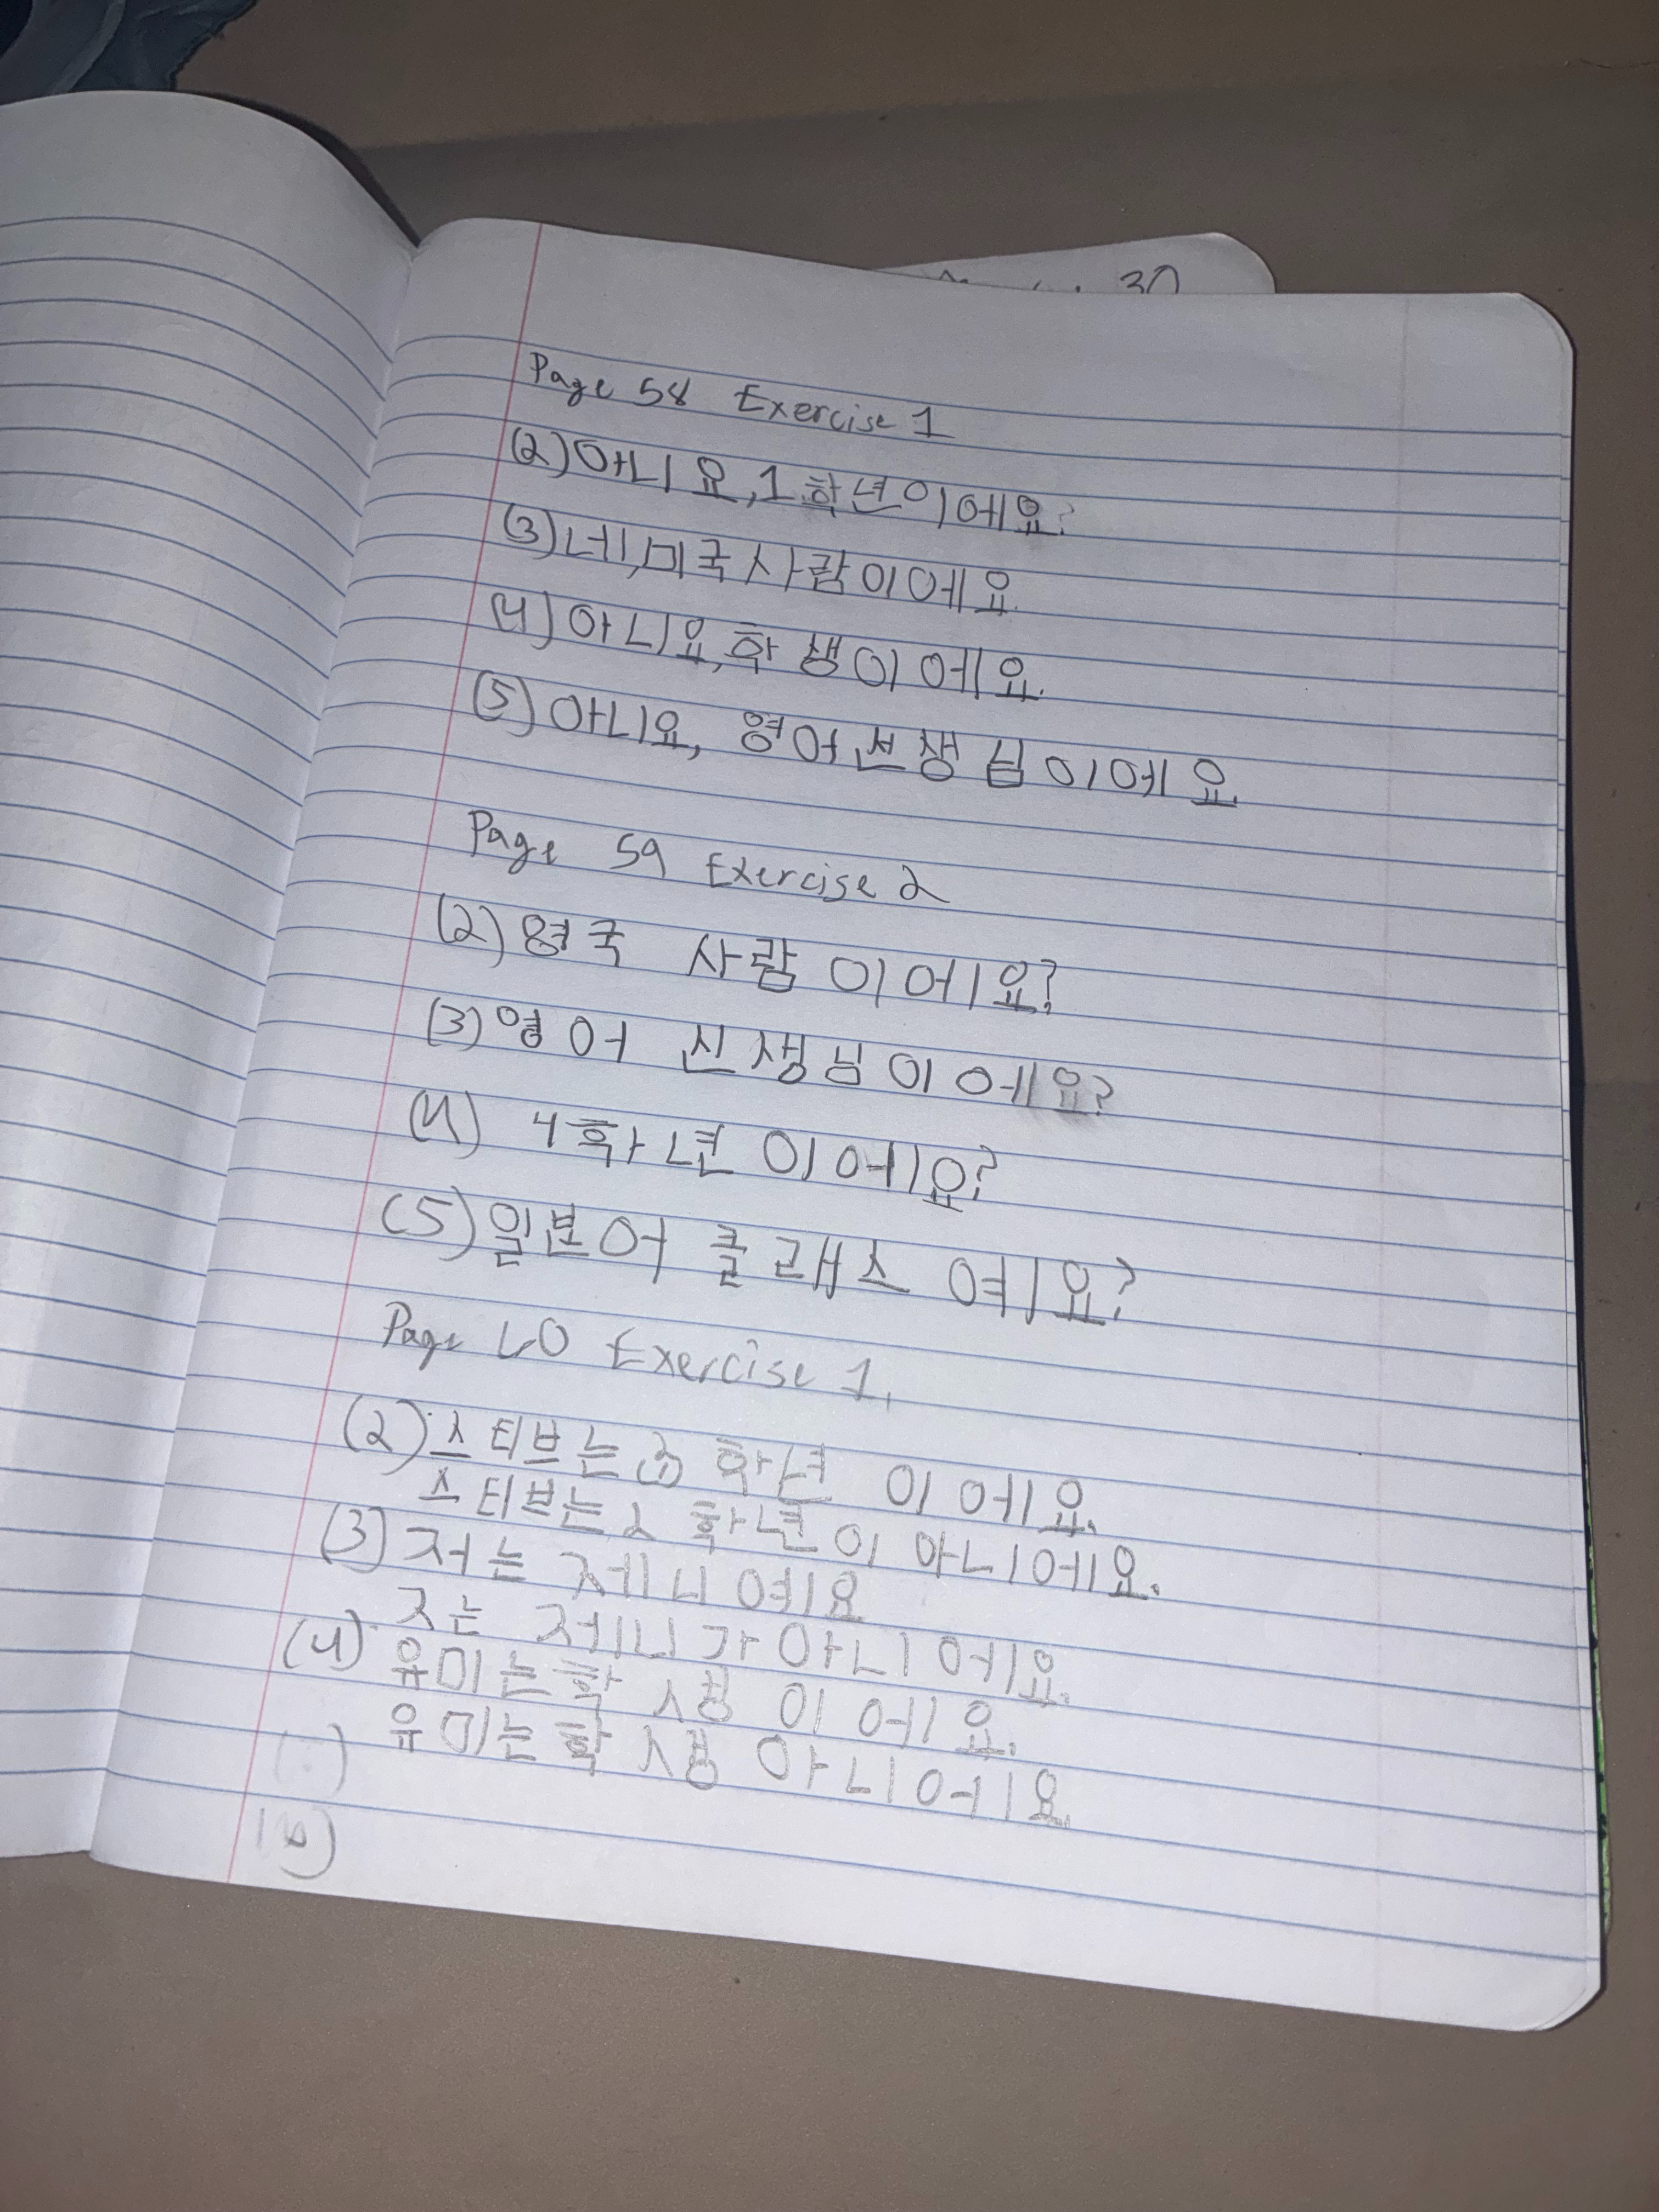 30
Page 58 Exercise 1
(2) 아니요, 1 학년이에요?
(3) 네, 미국사람이에요.
(4) 아니요, 학생이에요.
(5) 아니요, 영어선생님이에요.
Page 59 Exercise 2
(2) 영국 사람이에요?
(3) 영어 선생님이에요?
(4) 4학년이에요?
(5) 일본어 클래스 예요?
Page 60 Exercise 1.
(2) 스티브는 학년 이에요.
스티브는 2 학년이 아니에요.
(3) 저는 제니예요
저는 제니가 아니에요.
(4) 유미는 학생 이에요.
유미는 학생 아니에요.